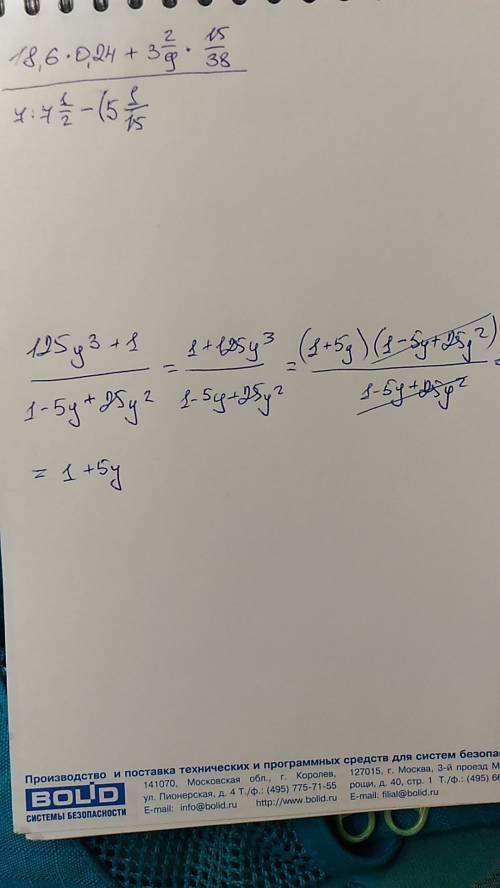 18,6 · 0,24 + 3 2/9 · 15/38
7 : 7 1/2 − (5 1/15
125y³ + 1 / 1 - 5y + 25y² = 1 + 125y³ / 1 - 5y + 25y² = (1 + 5y) (1 - 5y + 25y²) / 1 - 5y + 25y² =
= 1 + 5y
Производство и поставка технических и программных средств для систем
BOLID
СИСТЕМЫ БЕЗОПАСНОСТИ
141070, Московская обл., г. Королев,
ул. Пионерская, д. 4 Т./ф.: (495) 775-71-55
E-mail: info@bolid.ru http://www.bolid.ru
127015, г. Москва, 3-й проезд
рощи, д. 40, стр. 1 Т./ф.: (495)
E-mail: filial@bolid.ru